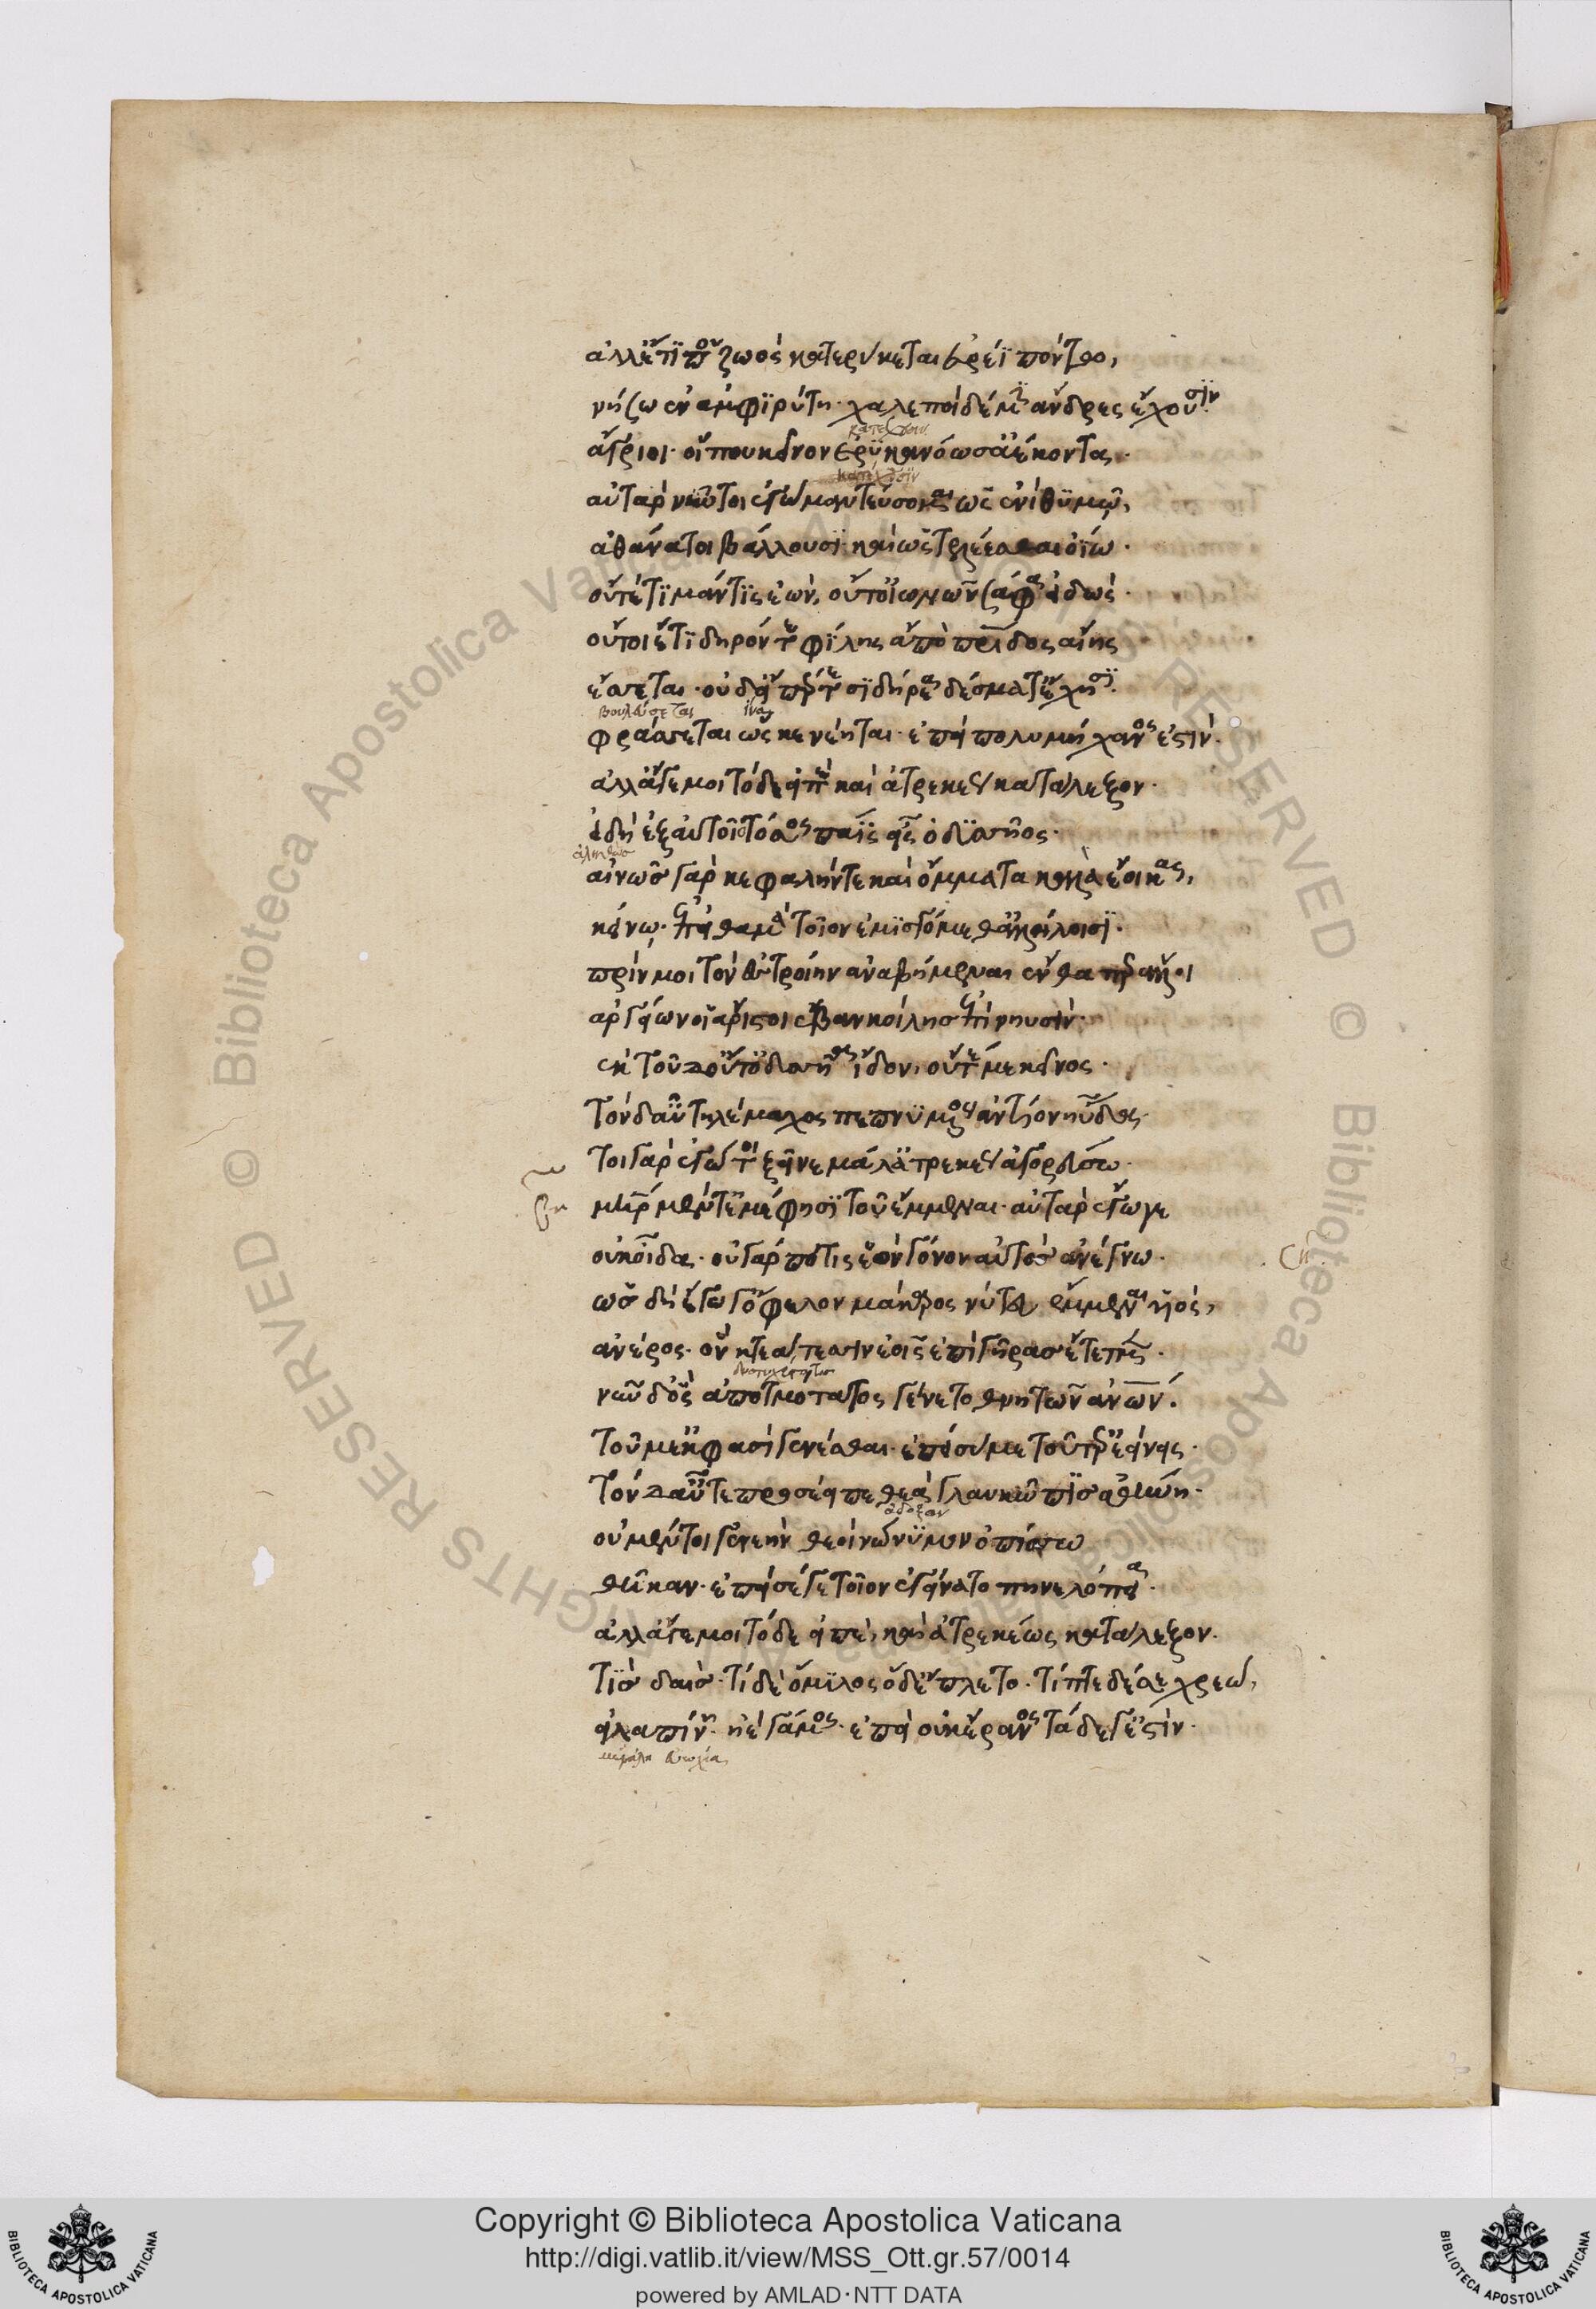 ἀλλ' ἔτι που ζωὸς κατερύκεται εὐρέϊ πόντῳ,
νήσῳ ἐν ἀμφιρύτῃ· χαλεποὶ δέ μιν ἄνδρες ἔχουσιν
ἄγριοι· οἵ που κεῖνον ἐρυκανόωσ' ἀέκοντα·
αὐτὰρ νῦν τοι ἐγὼ μαντεύσομαι ὡς ἐνὶ θυμῷ,
ἀθάνατοι βάλλουσι· καὶ ὡς τελέεσθαι ὀίω·
οὔτέ τι μάντις ἐὼν, οὔτ' οἰωνῶν σάφα εἰδώς·
οὔτοι ἔτι δηρόν γε φίλης ἀπὸ πατρίδος αἴης
ἔσσεται· οὐδ' εἴπερ τε σιδήρεα δέσματ' ἔχῃσι·
βουλεύσεται ἵνα
φράσσεται ὥς κε νέηται· ἐπεὶ πολυμήχανός ἐστιν·
ἀλλ' ἄγε μοι τόδε εἰπὲ καὶ ἀτρεκέως κατάλεξον·
εἰ δὴ ἐξ αὐτοῖο τόσος παῖς εἰς ὀδυσῆος·
αἰνῶς γὰρ κεφαλήν τε καὶ ὄμματα καλὰ ἔοικας,
κείνῳ· ἐπεὶ θαμὰ τοῖον ἐμισγόμεθ' ἀλλήλοισι·
πρίν μοι τὸν ἐς τροίην ἀναβήμεναι ἔνθα περ ἄλλοι
ἀργείων οἱ ἄριστοι ἔβαν κοίλῃς ἐπὶ νηυσίν·
ἐκ τοῦ δ' οὔτ' ὀδυσῆα ἴδον, οὔτ' ἐμὲ κεῖνος·
τὸν δ' αὖ τηλέμαχος πεπνυμένος ἀντίον ηὔδα·
τοὶ γὰρ ἐγώ τοι ξεῖνε μάλ' ἀτρεκέως ἀγορεύσω·
μήτηρ μέν τέ μέ φησι τοῦ ἔμμεναι· αὐτὰρ ἔγωγε
οὐκ οἶδα· οὐ γάρ πώ τις ἑὸν γόνον αὐτὸς ἀνέγνω·
ὡς δὴ ἔγωγ' ὄφελον μάκαρος νύ τευ ἔμμεναι υἱὸς,
ἀνέρος· ὃν κτεάτεσσιν ἑοῖς ἐπὶ γῆρας ἔτετμε·
νῦν δ' ὃς ἀποτμότατος γένετο θνητῶν ἀνθρώπων·
τοῦ μ' ἔκ φασι γενέσθαι· ἐπεὶ σύ με τοῦτ' ἐρεείνεις·
τὸν δ' αὖτε προσέειπε θεὰ γλαυκῶπις ἀθήνη·
οὐ μέν τοι γενεὴν θεοὶ νώνυμον ὀπίσσω
θῆκαν· ἐπεὶ σέ γε τοῖον ἐγείνατο πηνελόπεια·
ἀλλ' ἄγε μοι τόδε εἰπὲ, καὶ ἀτρεκέως κατάλεξον·
τίς δαίς· τίς δὲ ὅμιλος ὅδ' ἔπλετο· τίπτε δέ σε χρεώ,
εἰλαπίνη· ἠὲ γάμος· ἐπεὶ οὐκ ἔρανος τάδε γ' ἐστίν·
Copyright © Biblioteca Apostolica Vaticana
http://digi.vatlib.it/view/MSS_Ott.gr.57/0014
powered by AMLAD·NTT DATA